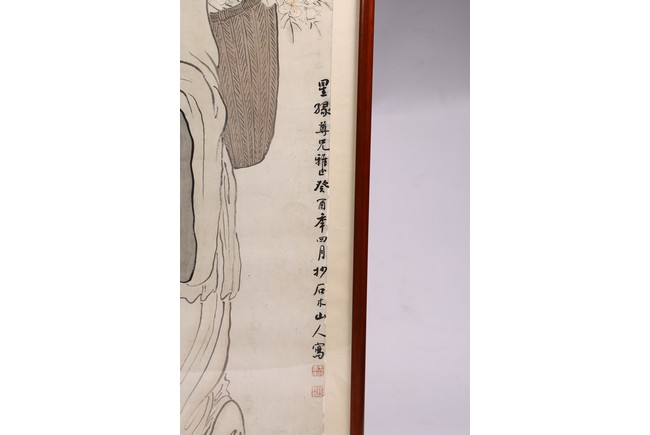 星緣尊兄雅正癸酉年四月抄石木山人寫